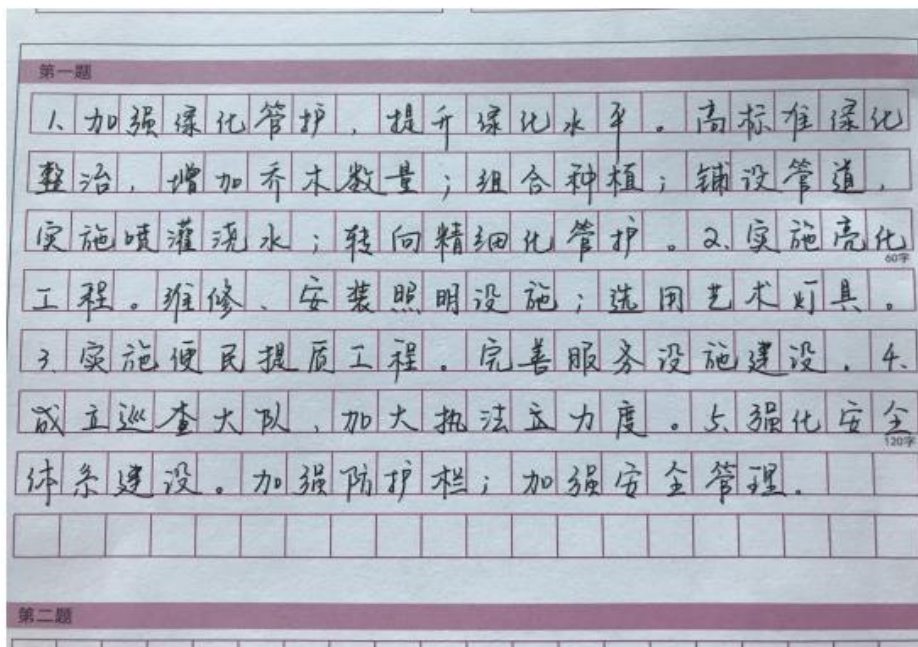 第一题
1、加强绿化管护，提升绿化水平。高标准绿化
整治，增加乔木数量；组合种植；铺设管道，
实施喷灌浇水；转向精细化管护。2、实施亮化
60字
工程。维修、安装照明设施；选用艺术灯具。
3 实施便民提质工程。完善服务设施建设。4.
成立巡查大队，加大执法立力度。5、强化安全
120字
体系建设。加强防护栏；加强安全管理.
第二题